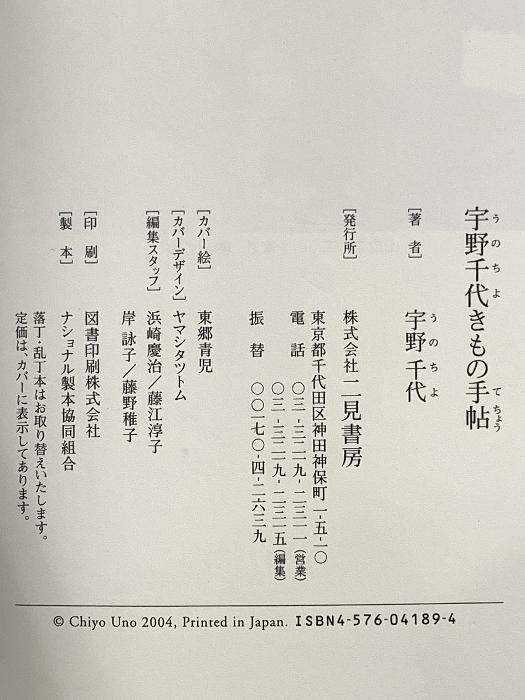 宇野千代きもの手帖
うのちよ
てちょう
[著者]
宇野千代
うのちよ
[発行所]
株式会社二見書房
東京都千代田区神田神保町一-五-一〇
電話 〇三-三二一九-二三一一(営業)
〇三-三二一九-二三一五(編集)
振替 〇〇一七〇-四-二六三九
[カバー絵]
東郷青児
[カバーデザイン]
ヤマシタツトム
[編集スタッフ]
浜崎慶治/藤江淳子
岸詠子/藤野稚子
[印刷]
図書印刷株式会社
[製本]
ナショナル製本協同組合
落丁・乱丁本はお取り替えいたします。
定価は、カバーに表示してあります。
© Chiyo Uno 2004, Printed in Japan. ISBN4-576-04189-4